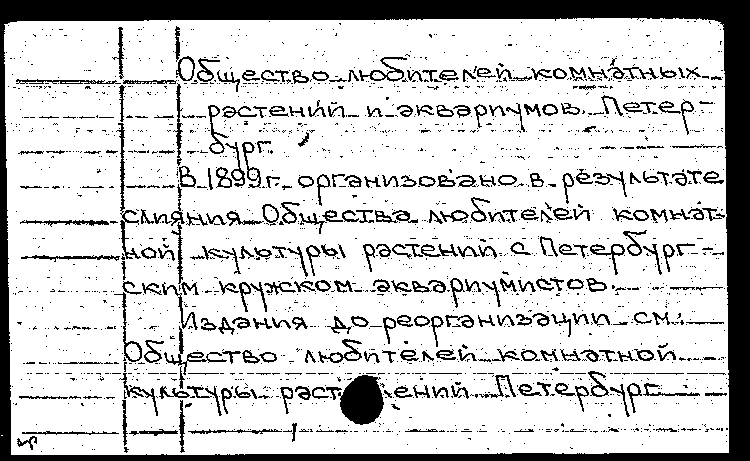 Общество любителей комнатных
растений и аквариумов. Петер-
бург.
В 1899г. организовано в результате
слияния Общества любителей комнат-
ной культуры растений с Петербург-
ским кружком аквариумистов.
Издания до реорганизации см.:
Общество любителей комнатной
культуры растений. Петербург.